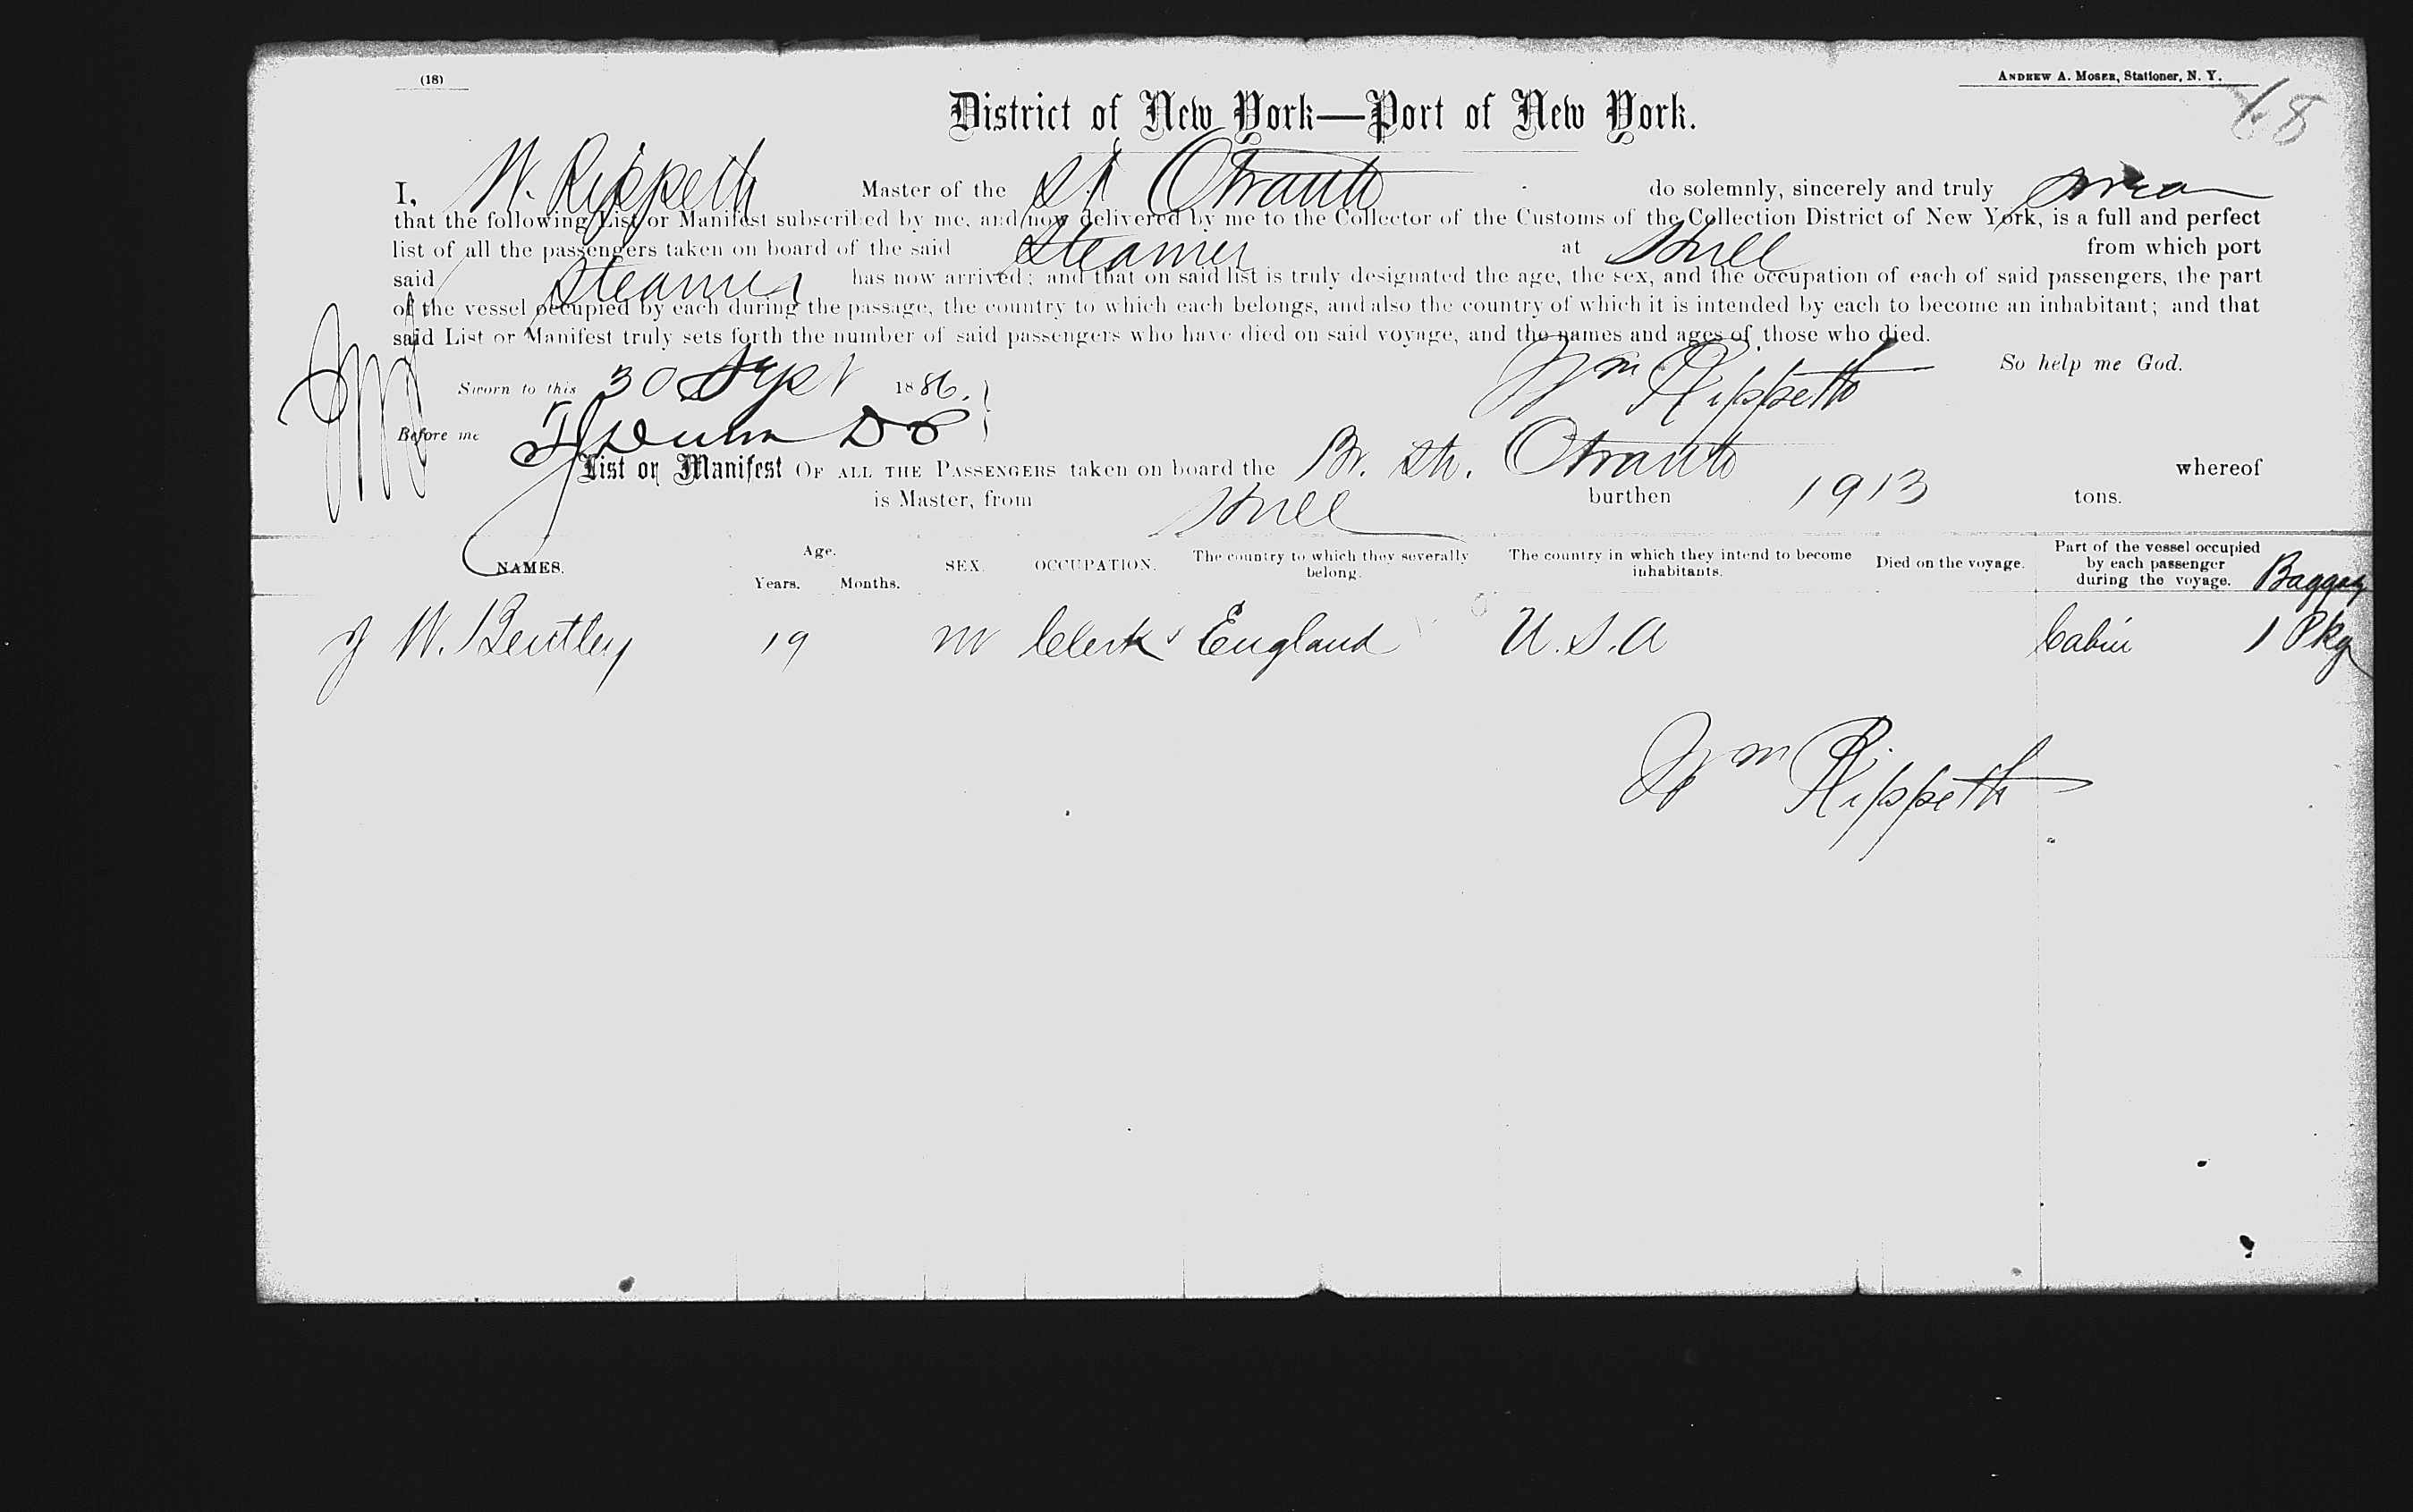 (18)
ANDREW A. MOSER, Stationer, N. Y.
68
District of New York—Port of New York.
I, W. Rippeth Master of the St Otranto do solemnly, sincerely and truly swear
that the following List or Manifest subscribed by me, and now delivered by me to the Collector of the Customs of the Collection District of New York, is a full and perfect
list of all the passengers taken on board of the said Steamer at Hull from which port
said Steamer has now arrived; and that on said list is truly designated the age, the sex, and the occupation of each of said passengers, the part
of the vessel occupied by each during the passage, the country to which each belongs, and also the country of which it is intended by each to become an inhabitant; and that
said List or Manifest truly sets forth the number of said passengers who have died on said voyage, and the names and ages of those who died.
So help me God.
Sworn to this 30 Sept 1886. Wm Rippeth
Before me
List or Manifest OF ALL THE PASSENGERS taken on board the Br. Str. Otranto whereof
is Master, from Hull burthen 1913 tons.
NAMES. Age. Years. Months. SEX. OCCUPATION. The country to which they severally belong. The country in which they intend to become inhabitants. Died on the voyage. Part of the vessel occupied by each passenger during the voyage. Baggag
J W. Bentley 19 M Clerk England U.S.A Cabin 1 Pkg
Wm Rippeth